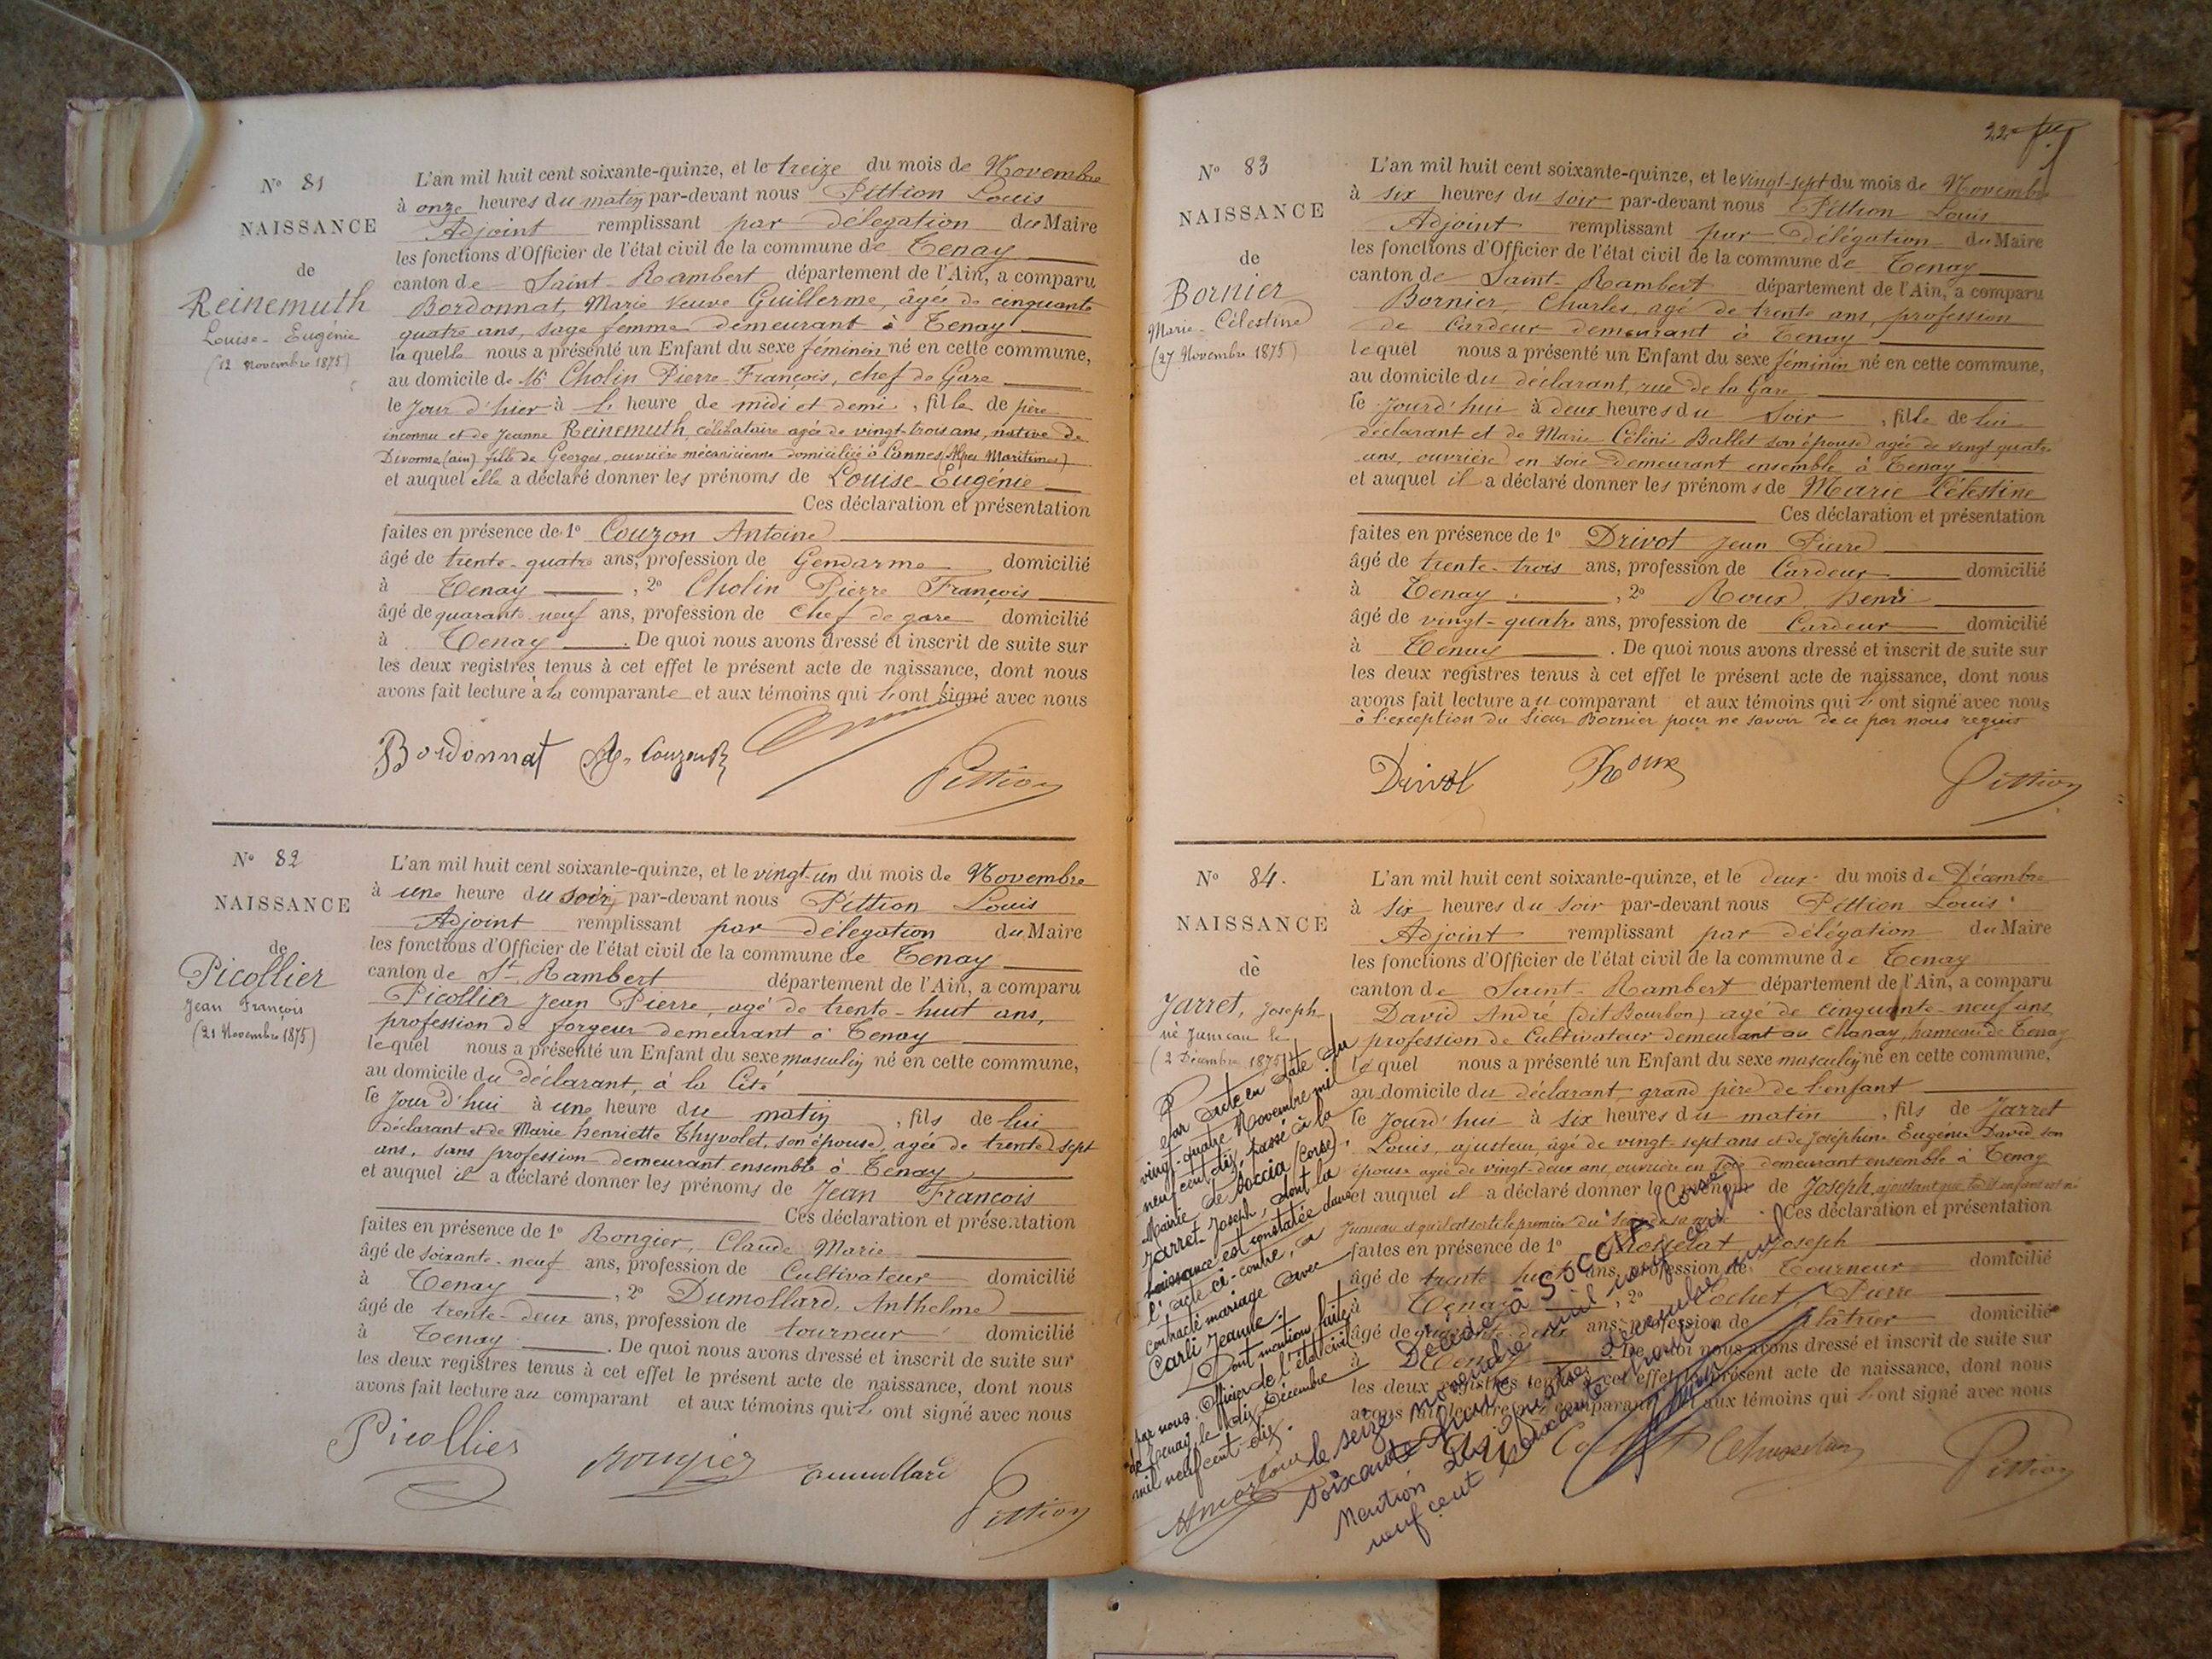 N° 81
NAISSANCE
de
Reinemuth
Louise-Eugénie
(12 Novembre 1875)
L'an mil huit cent soixante-quinze, et le treize du mois de Novembre
à onze heures du matin par-devant nous Pittion Louis
Adjoint remplissant par délégation du Maire
les fonctions d'Officier de l'état civil de la commune de Tenay
canton de Saint-Rambert département de l'Ain, a comparu
Bordonnat, Marie veuve Guillerme, âgée de cinquante
quatre ans, sage femme demeurant à Tenay
laquelle nous a présenté un Enfant du sexe féminin né en cette commune,
au domicile de Mr Cholin Pierre-François, chef de Gare
le jour d'hier à l' heure de midi et demi, fille de père
inconnu et de Jeanne Reinemuth, célibataire agée de vingt-trois ans, native de
Divonne (ain) fille de Georges, ouvrière mécanicienne domiciliée à Cannes (Alpes Maritimes)
et auquel elle a déclaré donner les prénoms de Louise-Eugénie
Ces déclaration et présentation
faites en présence de 1° Couzon Antoine
âgé de trente-quatre ans, profession de Gendarme domicilié
à Tenay, 2° Cholin Pierre François
âgé de quarante-neuf ans, profession de chef de gare domicilié
à Tenay. De quoi nous avons dressé et inscrit de suite sur
les deux registres tenus à cet effet le présent acte de naissance, dont nous
avons fait lecture à la comparante et aux témoins qui l'ont signé avec nous
Bordonnat Couzon Pittion
N° 82
NAISSANCE
de
Picollier
Jean François
(21 Novembre 1875)
L'an mil huit cent soixante-quinze, et le vingt-un du mois de Novembre
à une heure du soir, par-devant nous Pittion Louis
Adjoint remplissant par délégation du Maire
les fonctions d'Officier de l'état civil de la commune de Tenay
canton de St Rambert département de l'Ain, a comparu
Picollier Jean Pierre, agé de trente-huit ans,
profession de forgeur demeurant à Tenay
lequel nous a présenté un Enfant du sexe masculin né en cette commune,
au domicile du déclarant, à la Cité
le jour d'hui à une heure du matin, fils de lui
déclarant et de Marie henriette Thyvolet, son épouse, agée de trente sept
ans, sans profession demeurant ensemble à Tenay
et auquel il a déclaré donner les prénoms de Jean François
Ces déclaration et présentation
faites en présence de 1° Rongier, Claude Marie
âgé de soixante-neuf ans, profession de Cultivateur domicilié
à Tenay, 2° Dumollard, Anthelme
âgé de trente-deux ans, profession de tourneur domicilié
à Tenay. De quoi nous avons dressé et inscrit de suite sur
les deux registres tenus à cet effet le présent acte de naissance, dont nous
avons fait lecture au comparant et aux témoins qui l'ont signé avec nous
Picollier Rongier Dumollard Pittion
22
N° 83
NAISSANCE
de
Bornier
Marie-Célestine
(27 Novembre 1875)
L'an mil huit cent soixante-quinze, et le vingt-sept du mois de Novembre
à six heures du soir par-devant nous Pittion Louis
Adjoint remplissant par délégation du Maire
les fonctions d'Officier de l'état civil de la commune de Tenay
canton de Saint-Rambert département de l'Ain, a comparu
Bornier, Charles, agé de trente ans, profession
de Cardeur demeurant à Tenay
lequel nous a présenté un Enfant du sexe féminin né en cette commune,
au domicile du déclarant, rue de la Gare
le jourd'hui à deux heures du soir, fille de lui
déclarant et de Marie Célini Ballet son épouse agée de vingt quatre
ans, ouvrière en soie demeurant ensemble à Tenay
et auquel il a déclaré donner les prénoms de Marie Célestine
Ces déclaration et présentation
faites en présence de 1° Drivot Jean Pierre
âgé de trente-trois ans, profession de Cardeur domicilié
à Tenay, 2° Roux, henri
âgé de vingt-quatre ans, profession de Cardeur domicilié
à Tenay. De quoi nous avons dressé et inscrit de suite sur
les deux registres tenus à cet effet le présent acte de naissance, dont nous
avons fait lecture au comparant et aux témoins qui l'ont signé avec nous
à l'exception du Sieur Bornier pour ne savoir de ce par nous requis
Drivot Roux Pittion
N° 84.
NAISSANCE
de
Jarret, Joseph
né Jumeau le
(2 Décembre 1875)
Par acte en date du
vingt-quatre Novembre mil
neuf cent dix, passé à la
Mairie de Soccia (Corse),
Jarret Joseph, dont la
naissance est constatée dans
l'acte ci-contre, a
contracté mariage avec
Carli Jeanne.
Dont mention faite
par nous, Officier de l'état civil
de Tenay, le dix Décembre
mil neuf cent dix.
L'an mil huit cent soixante-quinze, et le deux du mois de Décembre
à six heures du soir par-devant nous Pittion Louis
Adjoint remplissant par délégation du Maire
les fonctions d'Officier de l'état civil de la commune de Tenay
canton de Saint-Rambert département de l'Ain, a comparu
David André (dit Bourbon) agé de cinquante-neuf ans
profession de Cultivateur demeurant au Chanay, hameau de Tenay
lequel nous a présenté un Enfant du sexe masculin né en cette commune,
au domicile du déclarant, grand père de l'enfant
le jourd'hui à six heures du matin, fils de Jarret
Louis, ajusteur, âgé de vingt-sept ans et de Joséphine Eugénie David son
épouse agée de vingt-deux ans ouvrière en soie demeurant ensemble à Tenay
et auquel il a déclaré donner le prénom de Joseph, ajoutant que le dit enfant est né
Jumeau et qu'il est sorti le premier du sein de sa mère. Ces déclaration et présentation
faites en présence de 1° Joseph
âgé de trente-huit ans, profession de Tourneur domicilié
à Tenay, 2° Cochet, Pierre
âgé de quarante-deux ans, profession de plâtrier domicilié
à Tenay De quoi nous avons dressé et inscrit de suite sur
les deux registres tenus à cet effet le présent acte de naissance, dont nous
avons fait lecture au comparant et aux témoins qui l'ont signé avec nous
Décédé à SOCCIA (Corse)
le seize novembre mil neuf cent
soixante huit.
Mention du quatre décembre mil
neuf cent soixante huit.
Pittion